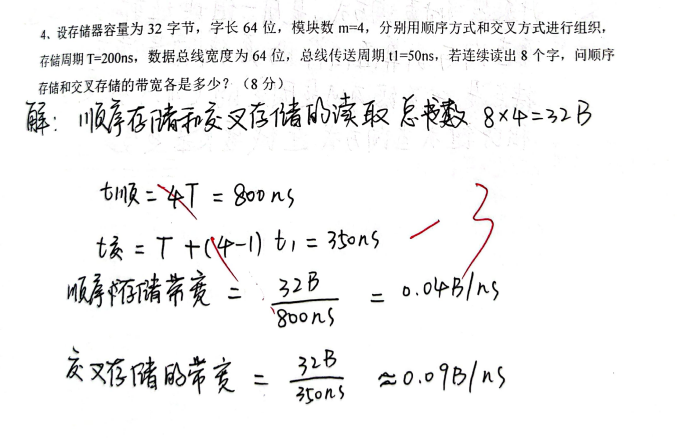 4、设存储器容量为 32 字节，字长 64 位，模块数 m=4，分别用顺序方式和交叉方式进行组织，
存储周期 T=200ns，数据总线宽度为 64 位，总线传送周期 t1=50ns，若连续读出 8 个字，问顺序
存储和交叉存储的带宽各是多少？（8 分）
解：顺序存储和交叉存储的读取总书数 8×4=32B
t顺=4T=800ns
t交=T+(4-1)t₁=350ns
-3
顺序存储带宽=32B/800ns=0.04B/ns
交叉存储的带宽=32B/350ns≈0.09B/ns